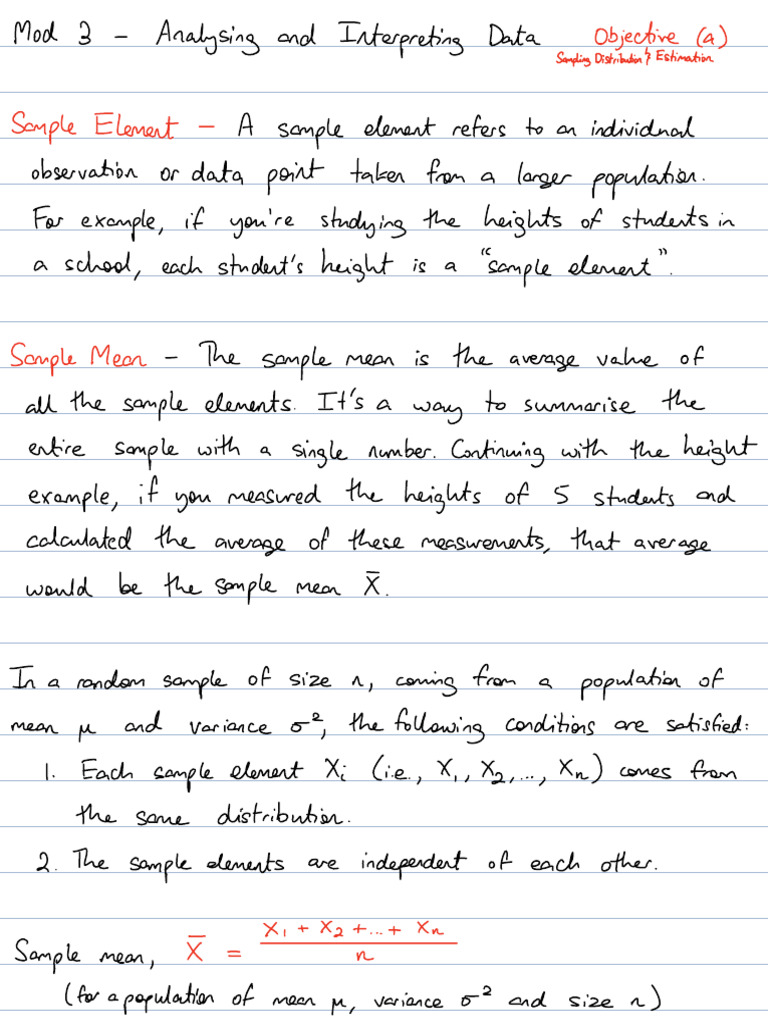 Mod 3 – Analysing and Interpreting Data Objective (a)
Sampling Distribution & Estimation
Sample Element – A sample element refers to an individual
observation or data point taken from a larger population.
For example, if you're studying the heights of students in
a school, each student's height is a "sample element".
Sample Mean – The sample mean is the average value of
all the sample elements. It's a way to summarise the
entire sample with a single number. Continuing with the height
example, if you measured the heights of 5 students and
calculated the average of these measurements, that average
would be the sample mean X̄.
In a random sample of size n, coming from a population of
mean μ and variance σ², the following conditions are satisfied:
1. Each sample element Xi (i.e., X₁, X₂, ..., Xn) comes from
the same distribution.
2. The sample elements are independent of each other.
Sample mean, X̄ = (X₁ + X₂ + ... + Xn) / n
(for a population of mean μ, variance σ² and size n)